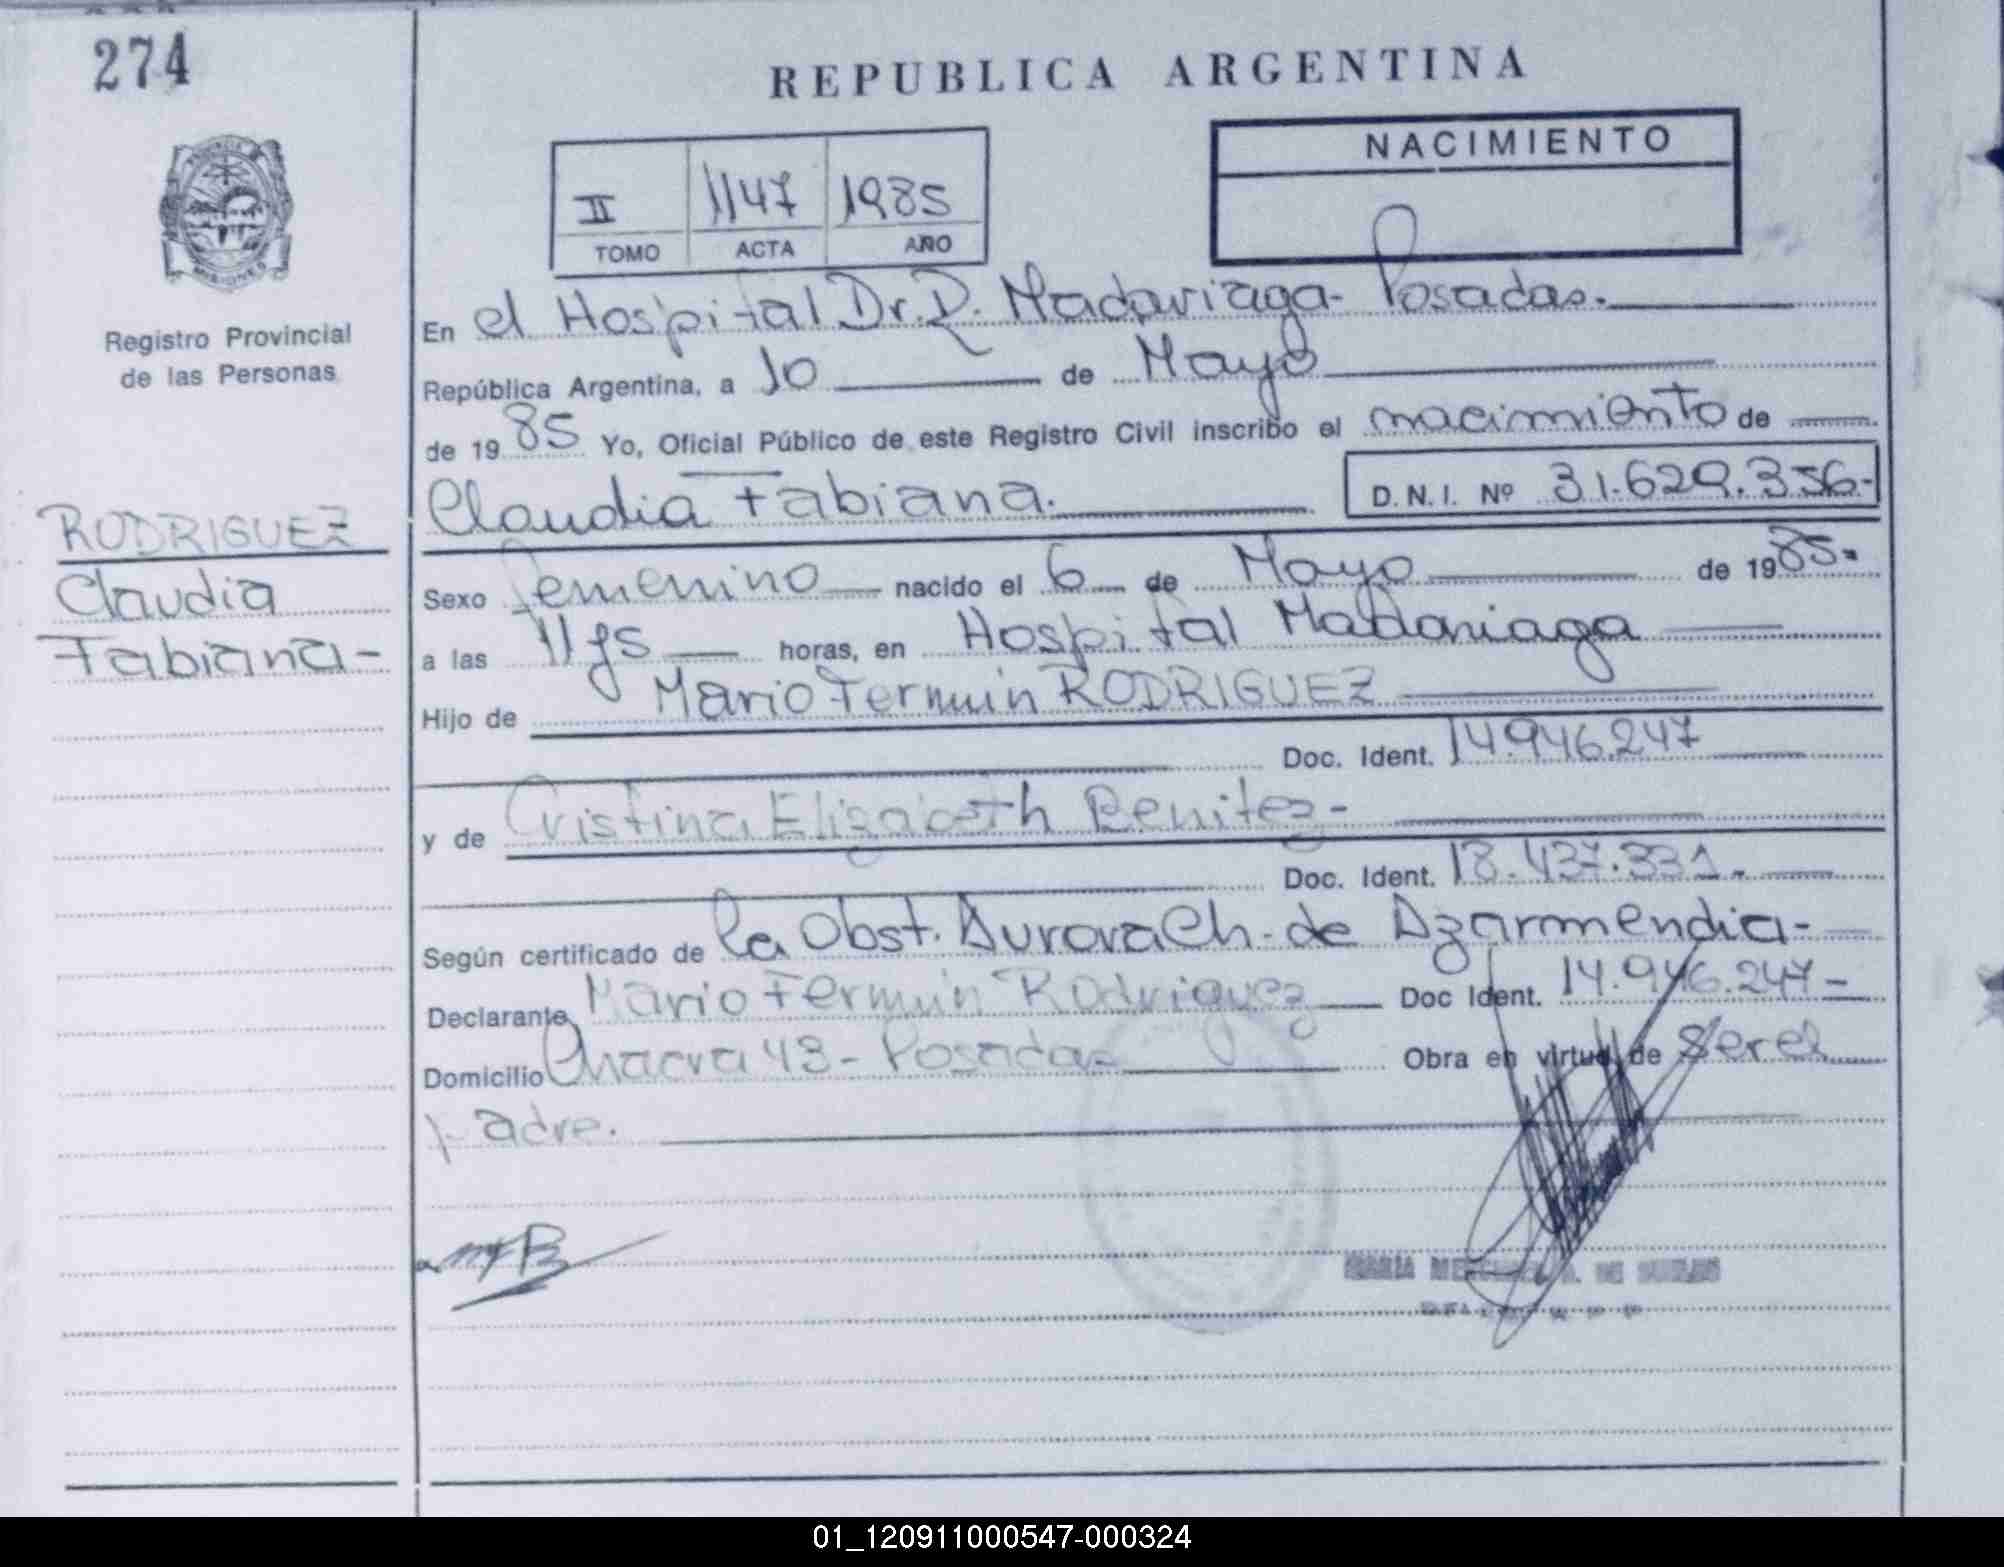 274
REPUBLICA ARGENTINA
NACIMIENTO
II 1147 1985
TOMO ACTA AÑO
Registro Provincial
de las Personas
RODRIGUEZ
Claudia
Fabiana-
En el Hospital Dr. R. Madariaga- Posadas.
República Argentina, a 10 de Mayo
de 1985 Yo, Oficial Público de este Registro Civil inscribo el nacimiento de
Claudia Fabiana. D.N.I. Nº 31.629.356-
Sexo femenino nacido el 6 de Mayo de 1985-
a las 11 hs horas, en Hospital Madariaga
Hijo de Mario Fermin RODRIGUEZ
Doc. Ident. 14.946.247
y de Cristina Elizabeth Benitez-
Doc. Ident. 18.437.331.
Según certificado de la Obst. Aurora Ch. de Azarmendia-
Declarante Mario Fermin Rodriguez Doc Ident. 14.946.247-
Domicilio Chacra 43- Posadas Obra en virtud de Ser el
padre.
MARIA DE
01_120911000547-000324